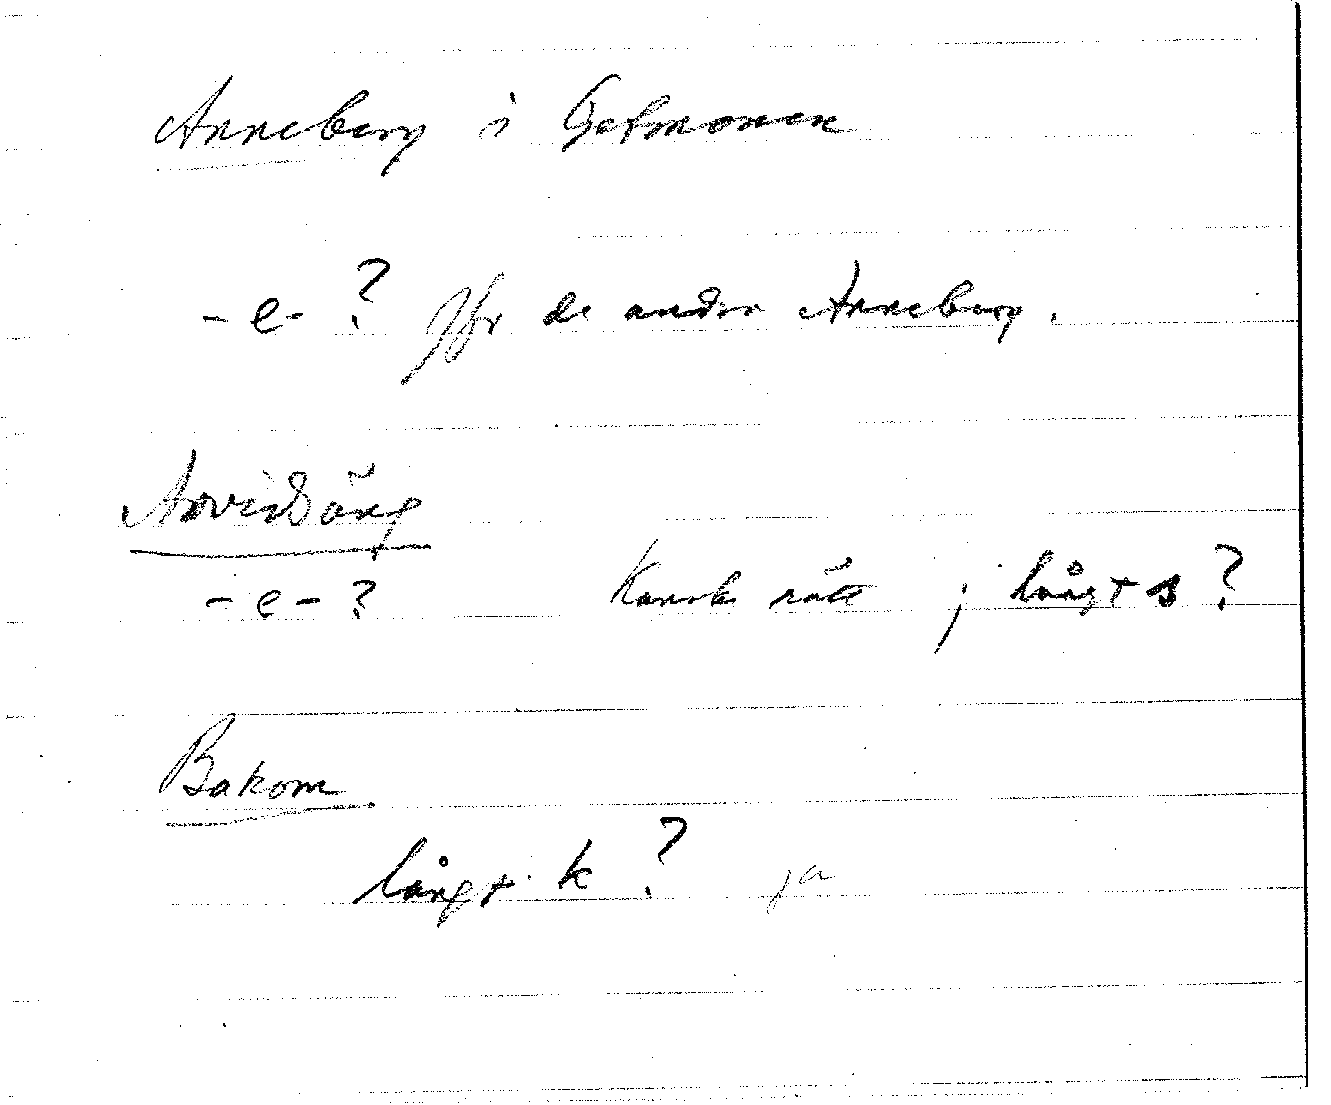 Anneberg i Getmossen
-e- ? Jfr de andra Anneberg.
Arvidsäng
-e- ? Kanske rätt ; långt s ?
Bakom
långt k ? ja